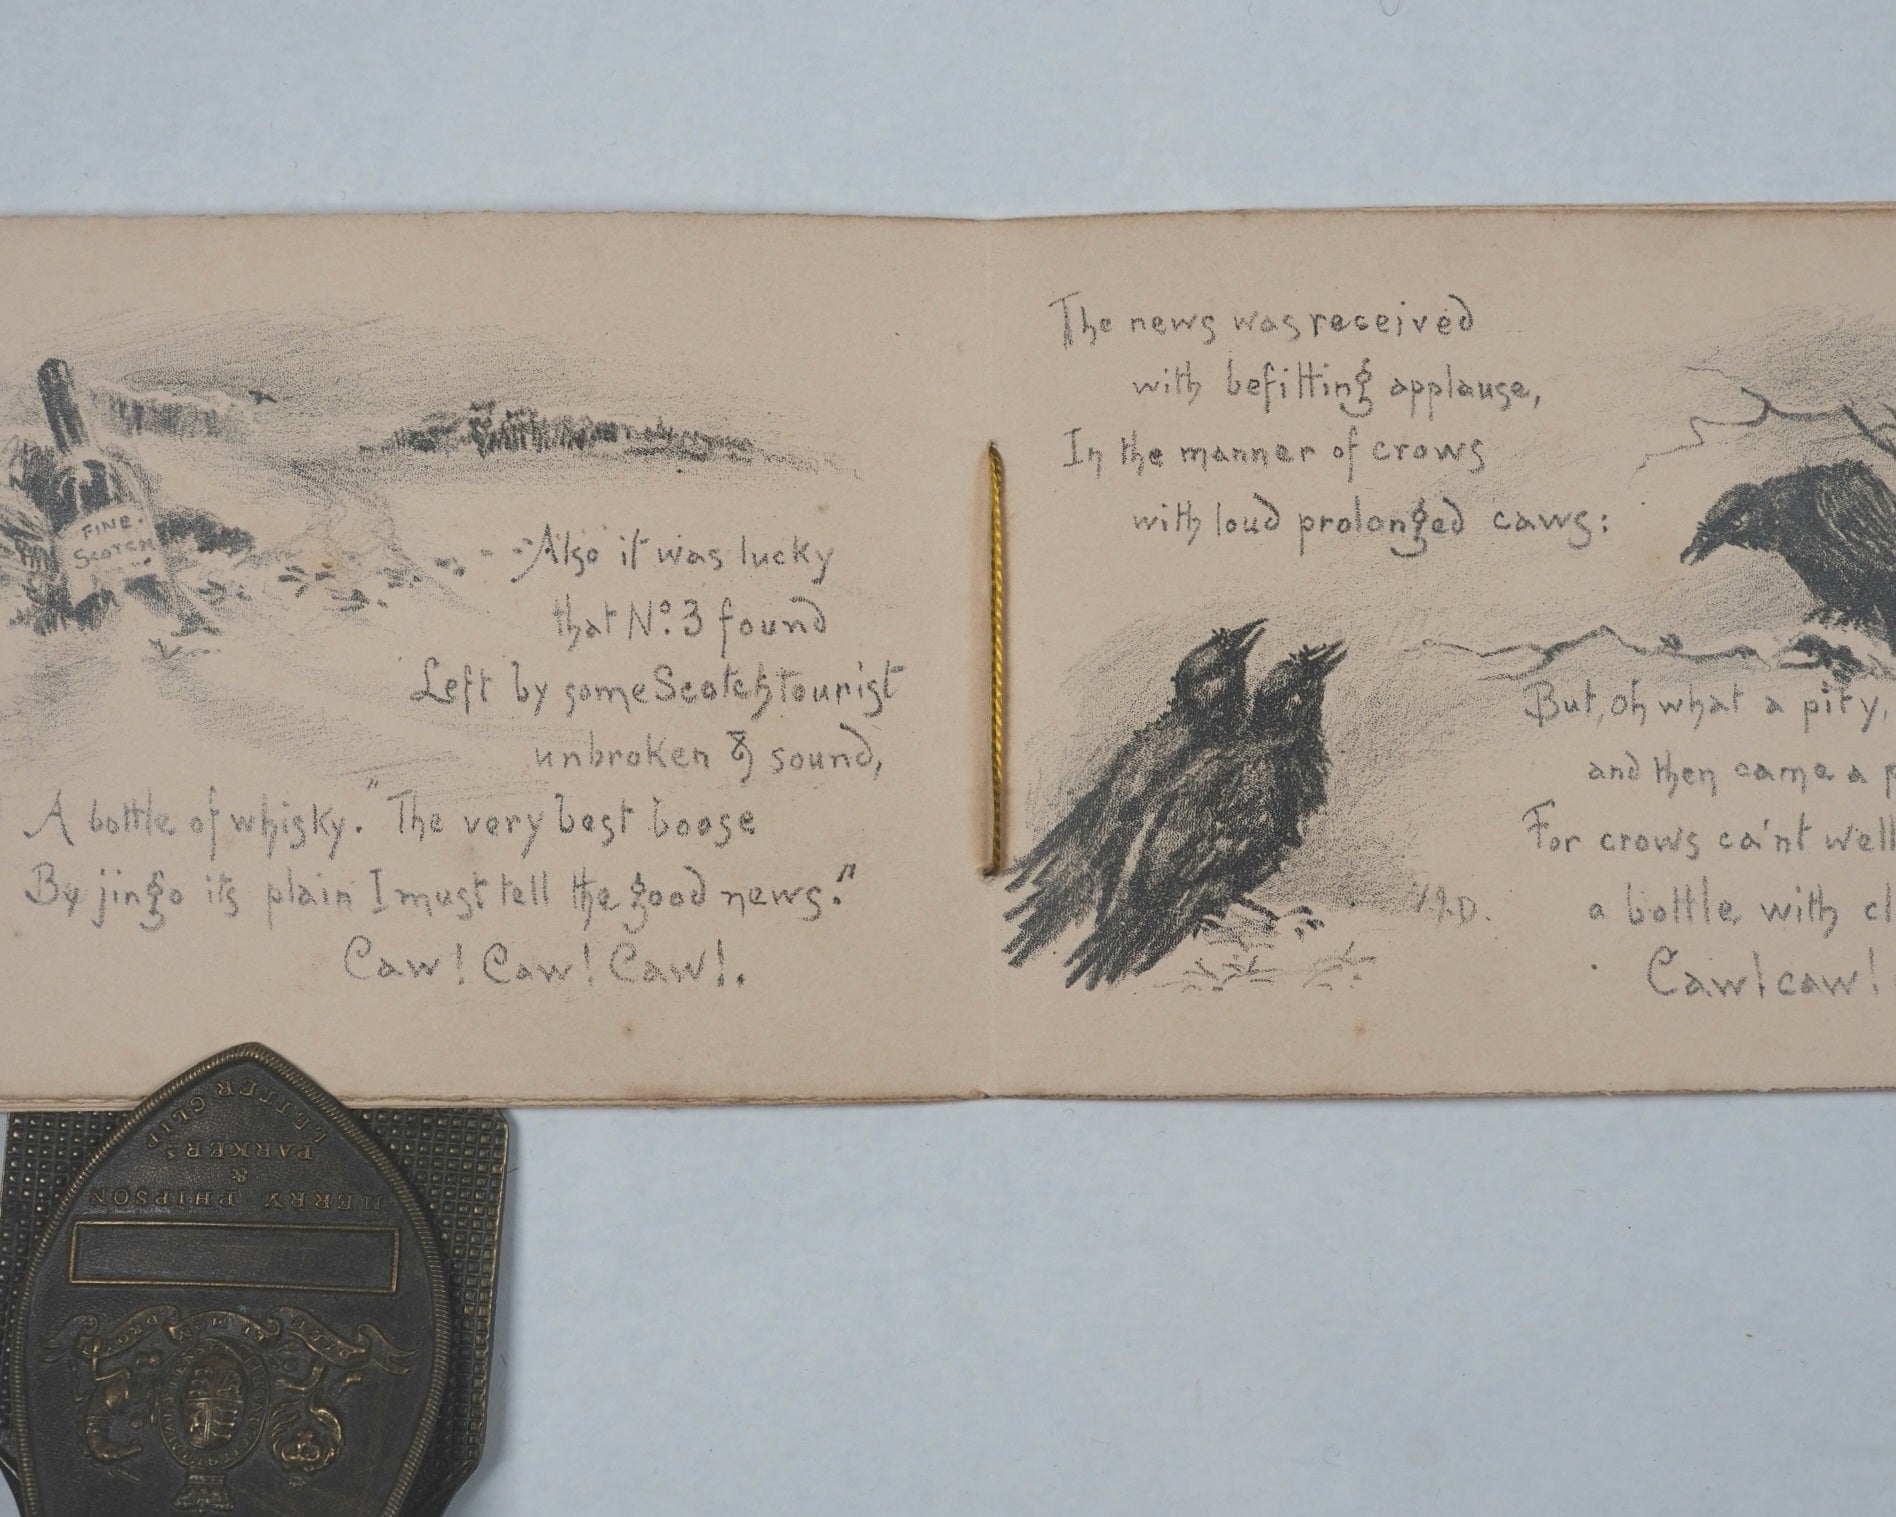 FINE.
SCOTCH
Also it was lucky
that No. 3 found
Left by some Scotch tourist
unbroken & sound,
A bottle of whisky. "The very best boose
By jingo its plain I must tell the good news."
Caw! Caw! Caw!.
The news was received
with befitting applause,
In the manner of crows
with loud prolonged caws:
But, oh what a pity,
and then came a
For crows ca'nt well
a bottle with
Caw! caw!
MERRY PHIPSON
&
PARKER'S
LETTER CLIP
DIEU ET MON DROIT